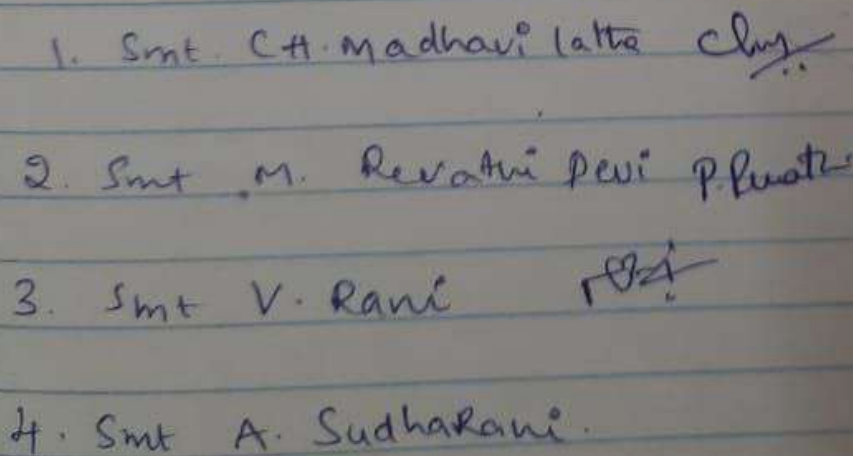 1. Smt. CH. Madhavi latha
2. Smt M. Revathi Devi
3. Smt V. Rani
4. Smt A. SudhaRani.